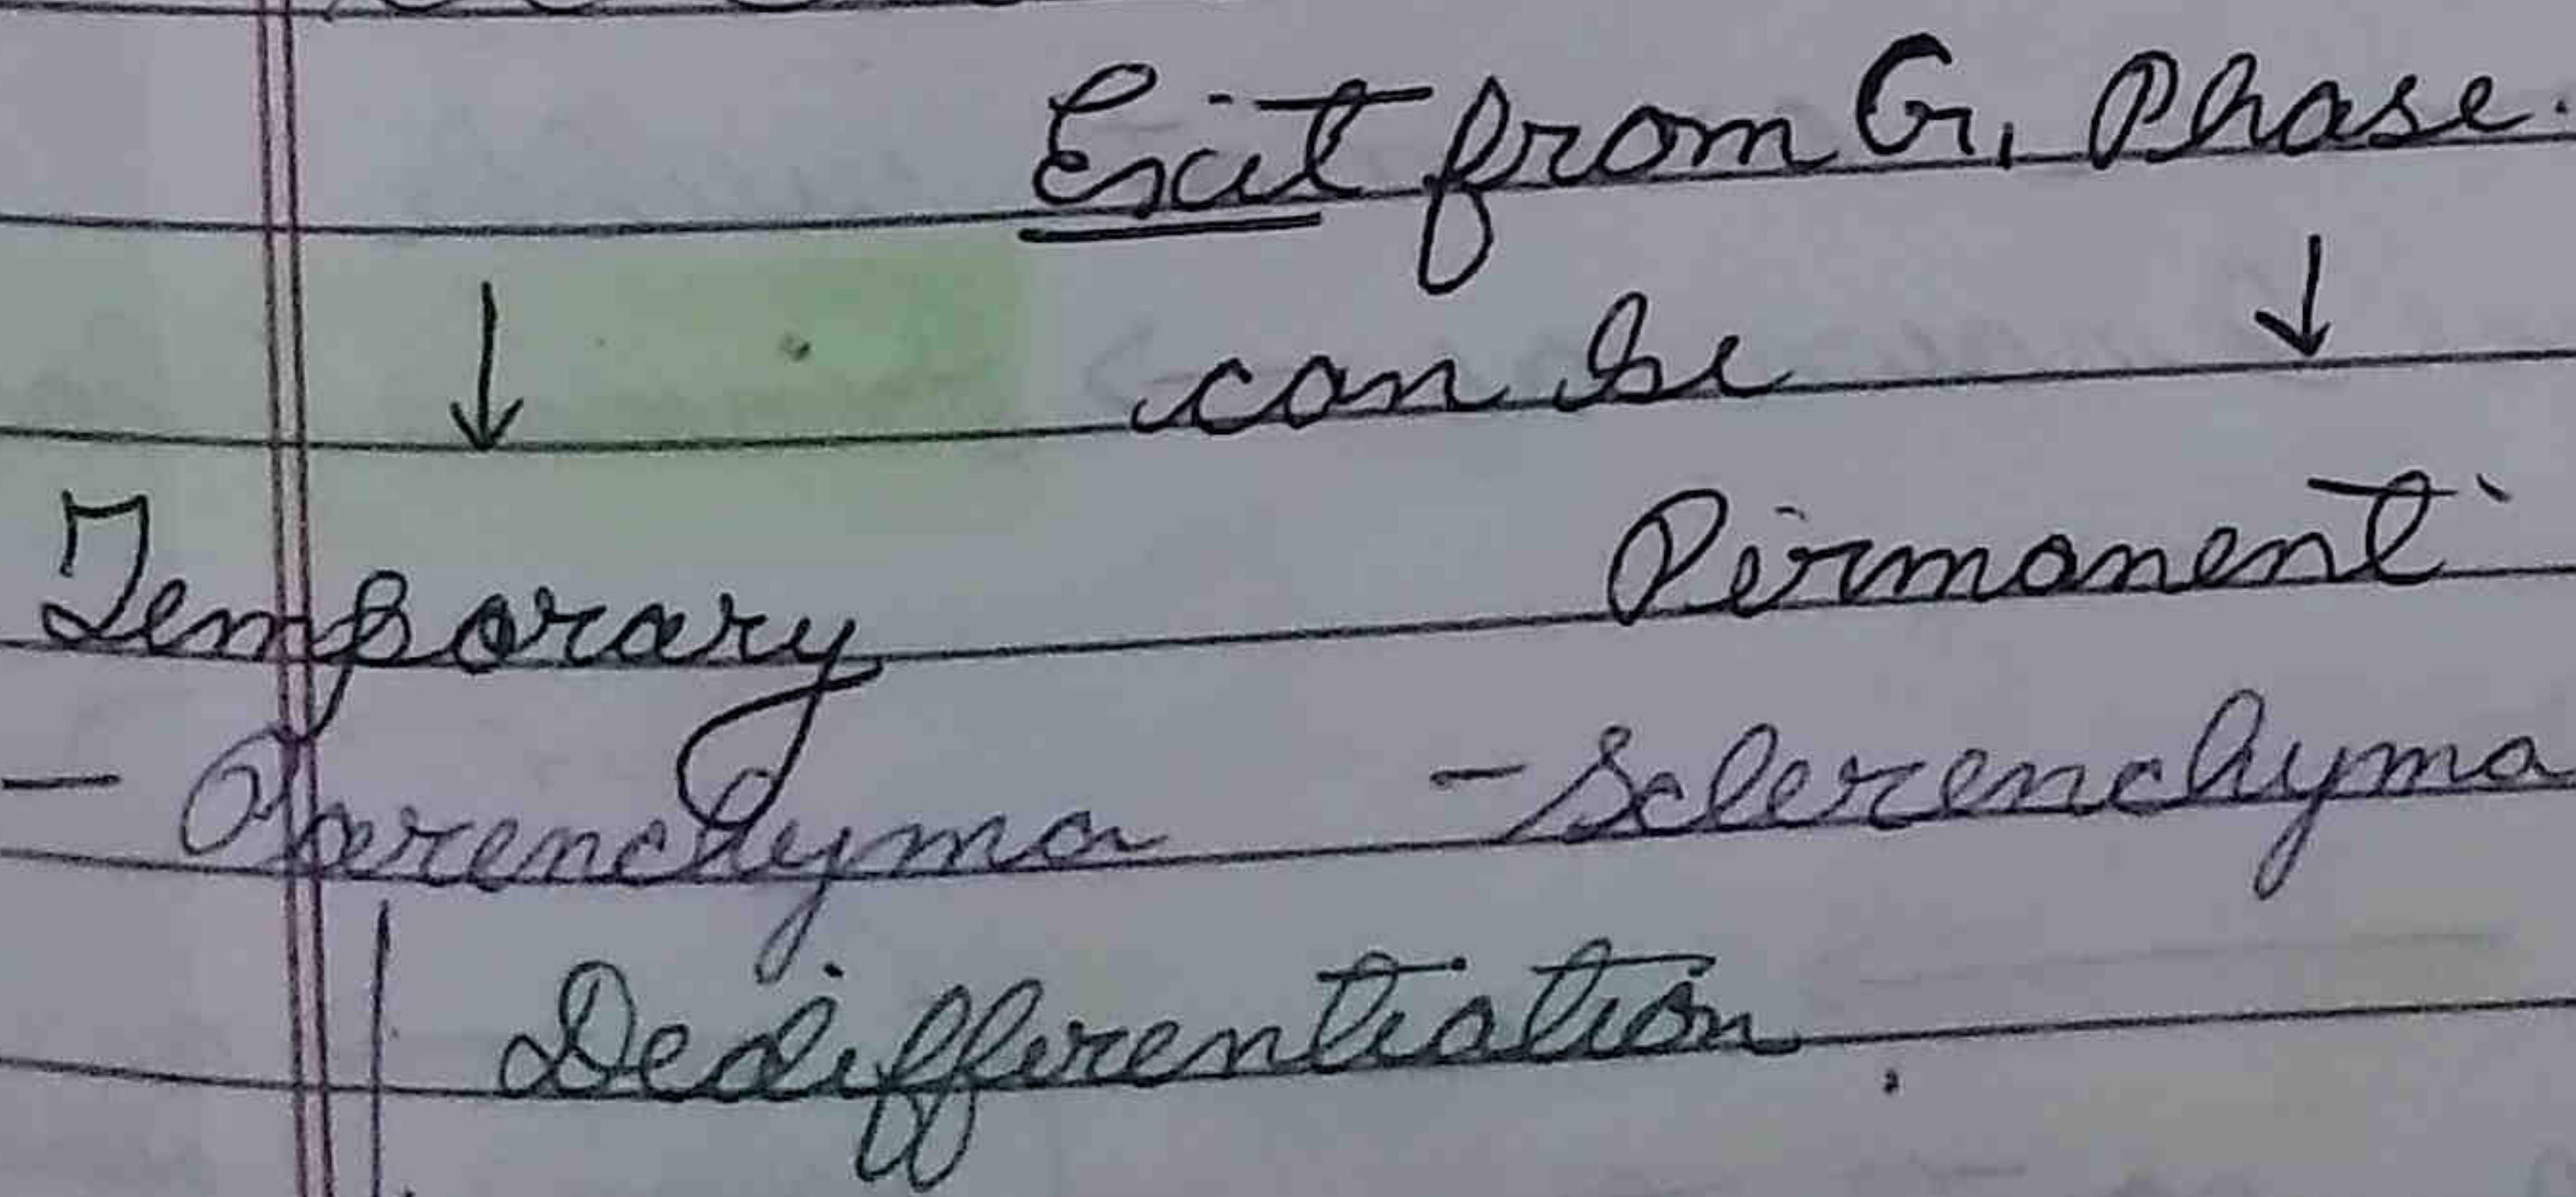 Exit from G1 Phase.
↓ can be ↓
Temporary Permanent
- Parenchyma - Sclerenchyma
Dedifferentiation